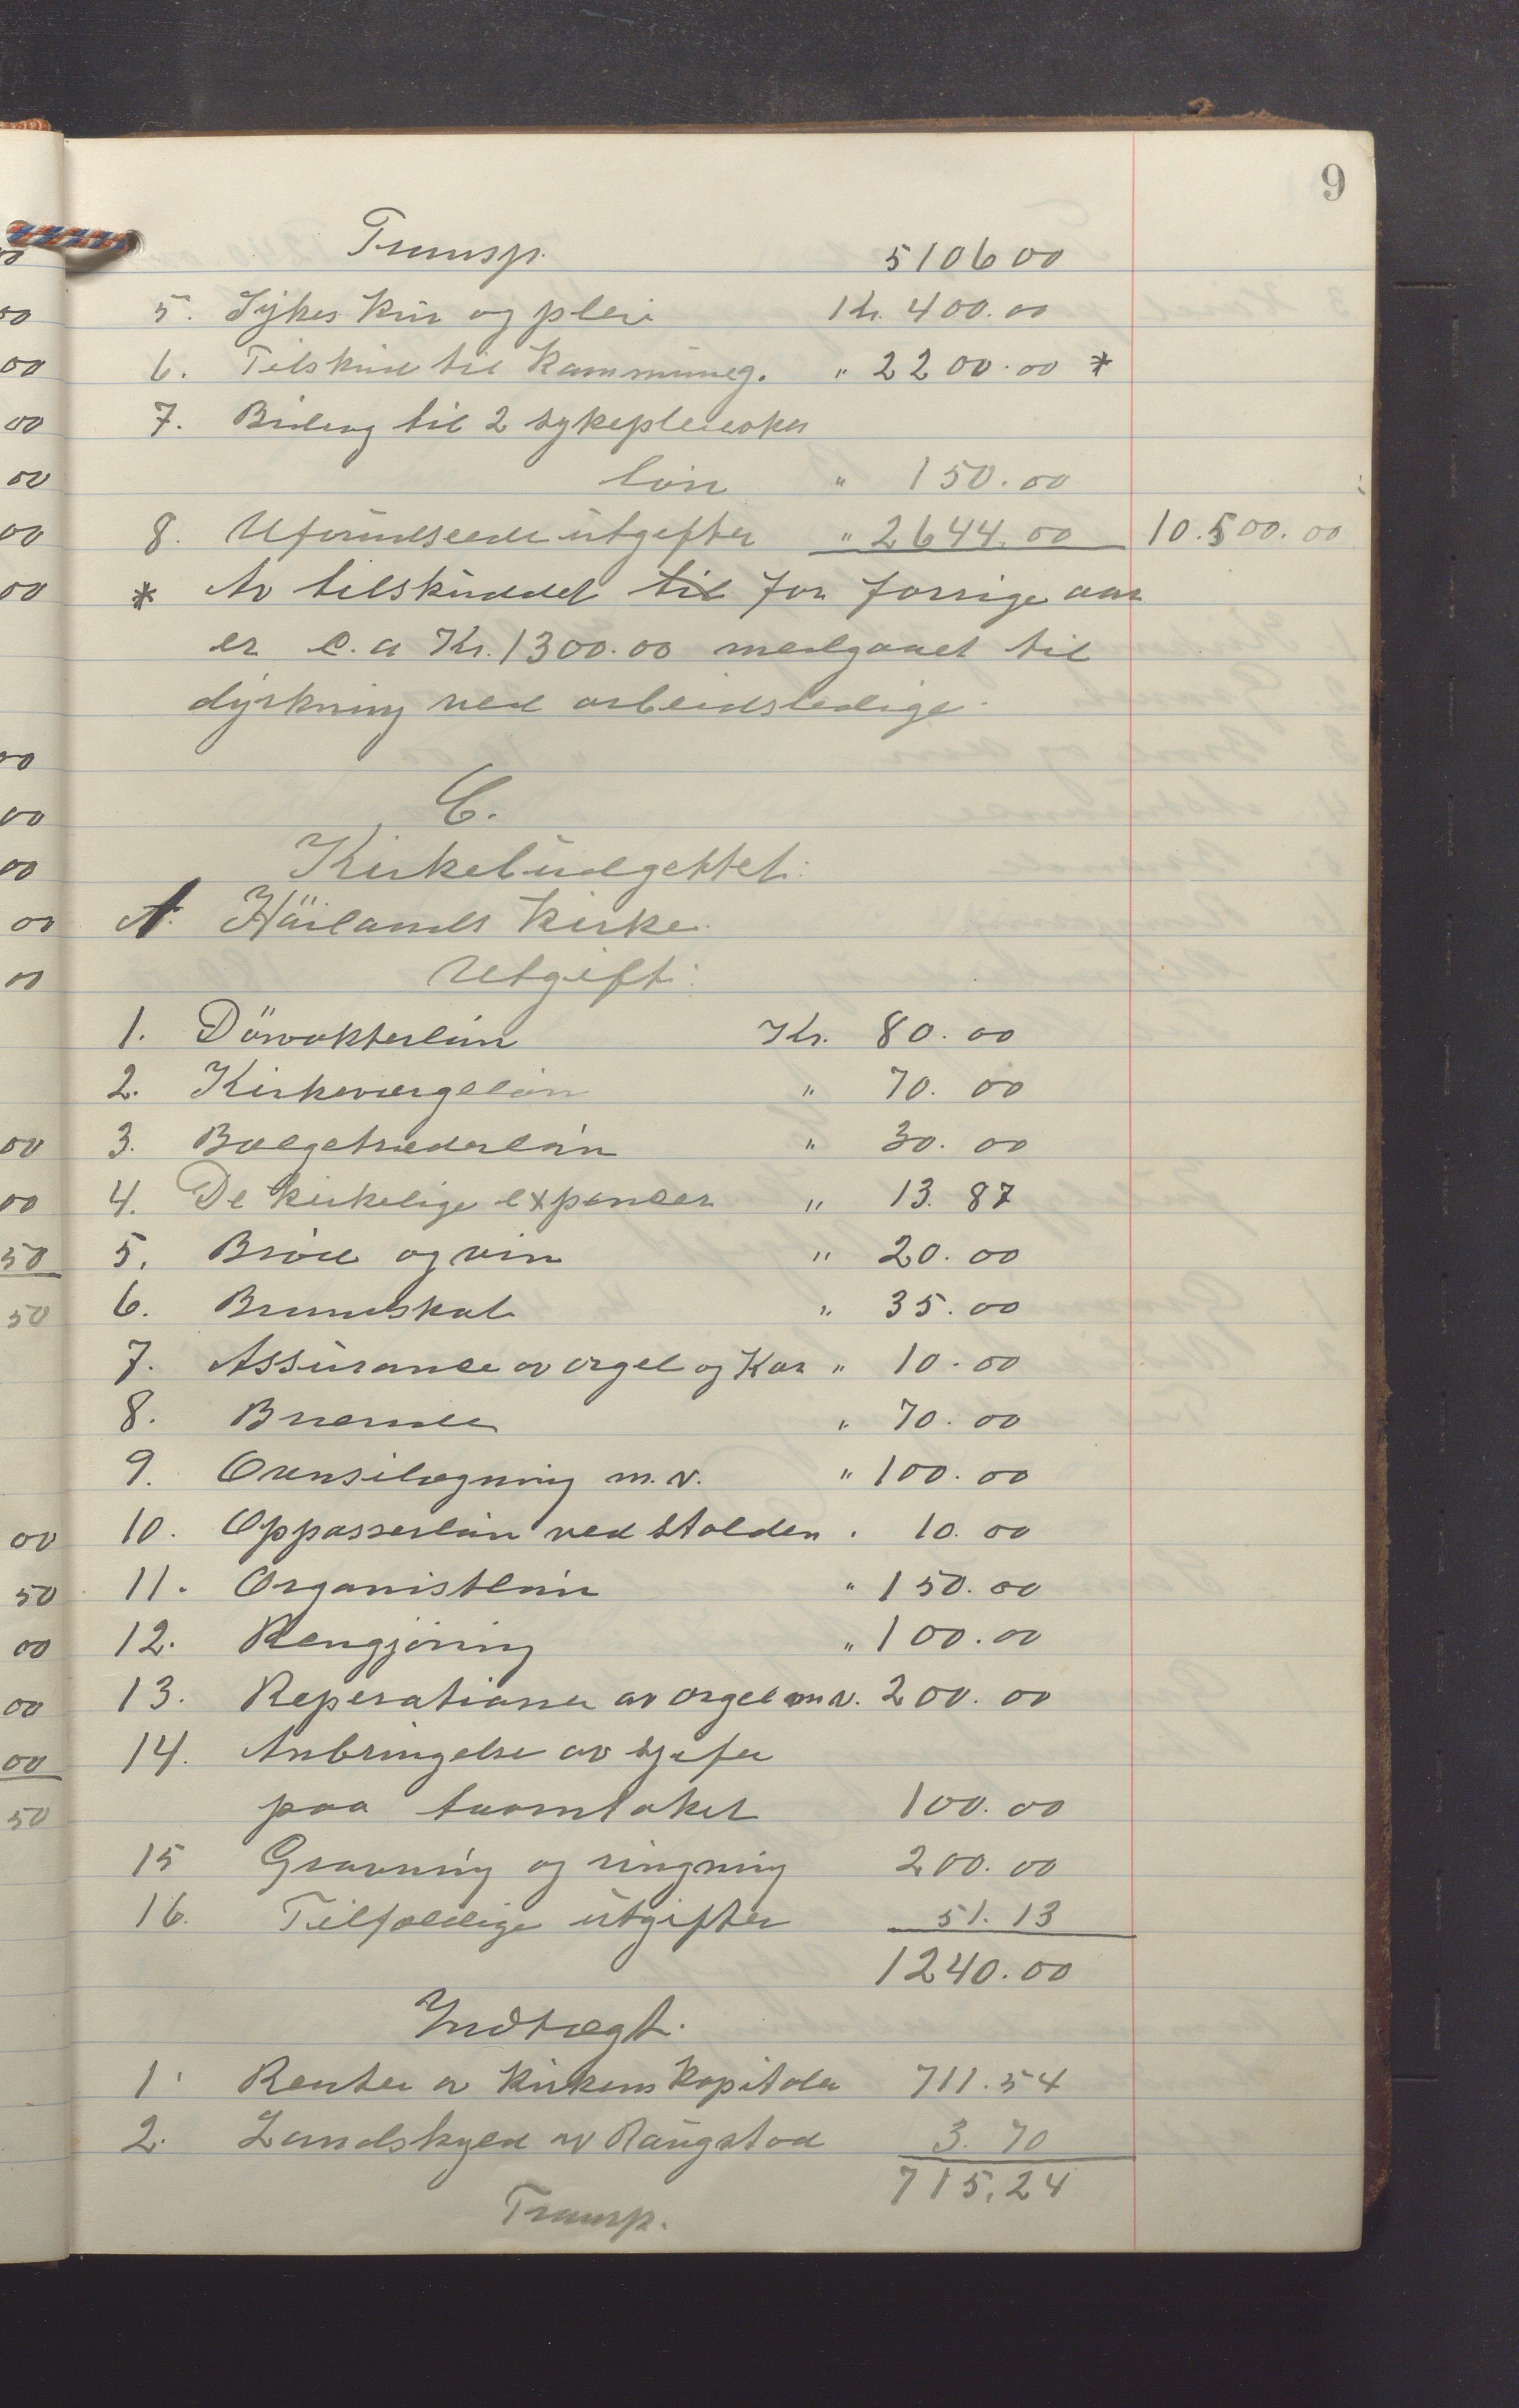 9
Transp. 5106 00
5. Sykes kur og pleie Kr. 400.00
6. Tilskud til kommuneg. " 2200.00 *
7. Bidrag til 2 sykepleiersker
løn " 150.00
8. Uforudseede utgifter " 2644.00 10.500.00
* Av tilskuddet til for forrige aar
er c.a Kr. 1300.00 medgaaet til
dyrkning ved arbeidsledige.
C.
Kirkebudgettet.
A. Håilands kirke.
Utgift:
1. Dörvokterløn Kr. 80.00
2. Kirkeværgeløn " 70.00
3. Bælgetræderløn " 30.00
4. De kirkelige expenser " 13.87
5. Brød og vin " 20.00
6. Brandskat " 35.00
7. Assurance av orgel og Kar " 10.00
8. Brænde " 70.00
9. Ovnsilægning m.v. " 100.00
10. Oppasserløn ved stalden . 10.00
11. Organistløn " 150.00
12. Rengjøring " 100.00
13. Reperationer av orgel m.v. 200.00
14. Anbringelse av
paa taarntaket 100.00
15 Gravning og ringning 200.00
16. Tilfældige utgifter 51.13
1240.00
Indtægt.
1. Renter av kirkens kapitaler 711.54
2. Landskyld av Raugstad 3.70
715.24
Transp.